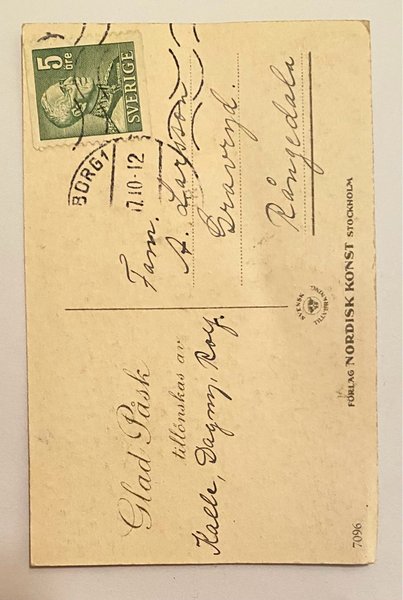 Glad Påsk
tillönskas av
Kalle, Dagny, Roy.
7096
FÖRLAG NORDISK KONST STOCKHOLM
SVENSK
TILLVERKNING
5
öre
SVERIGE
BORG 1
10-12
Fam.
A. Larsson
Gravryd.
Rångedala